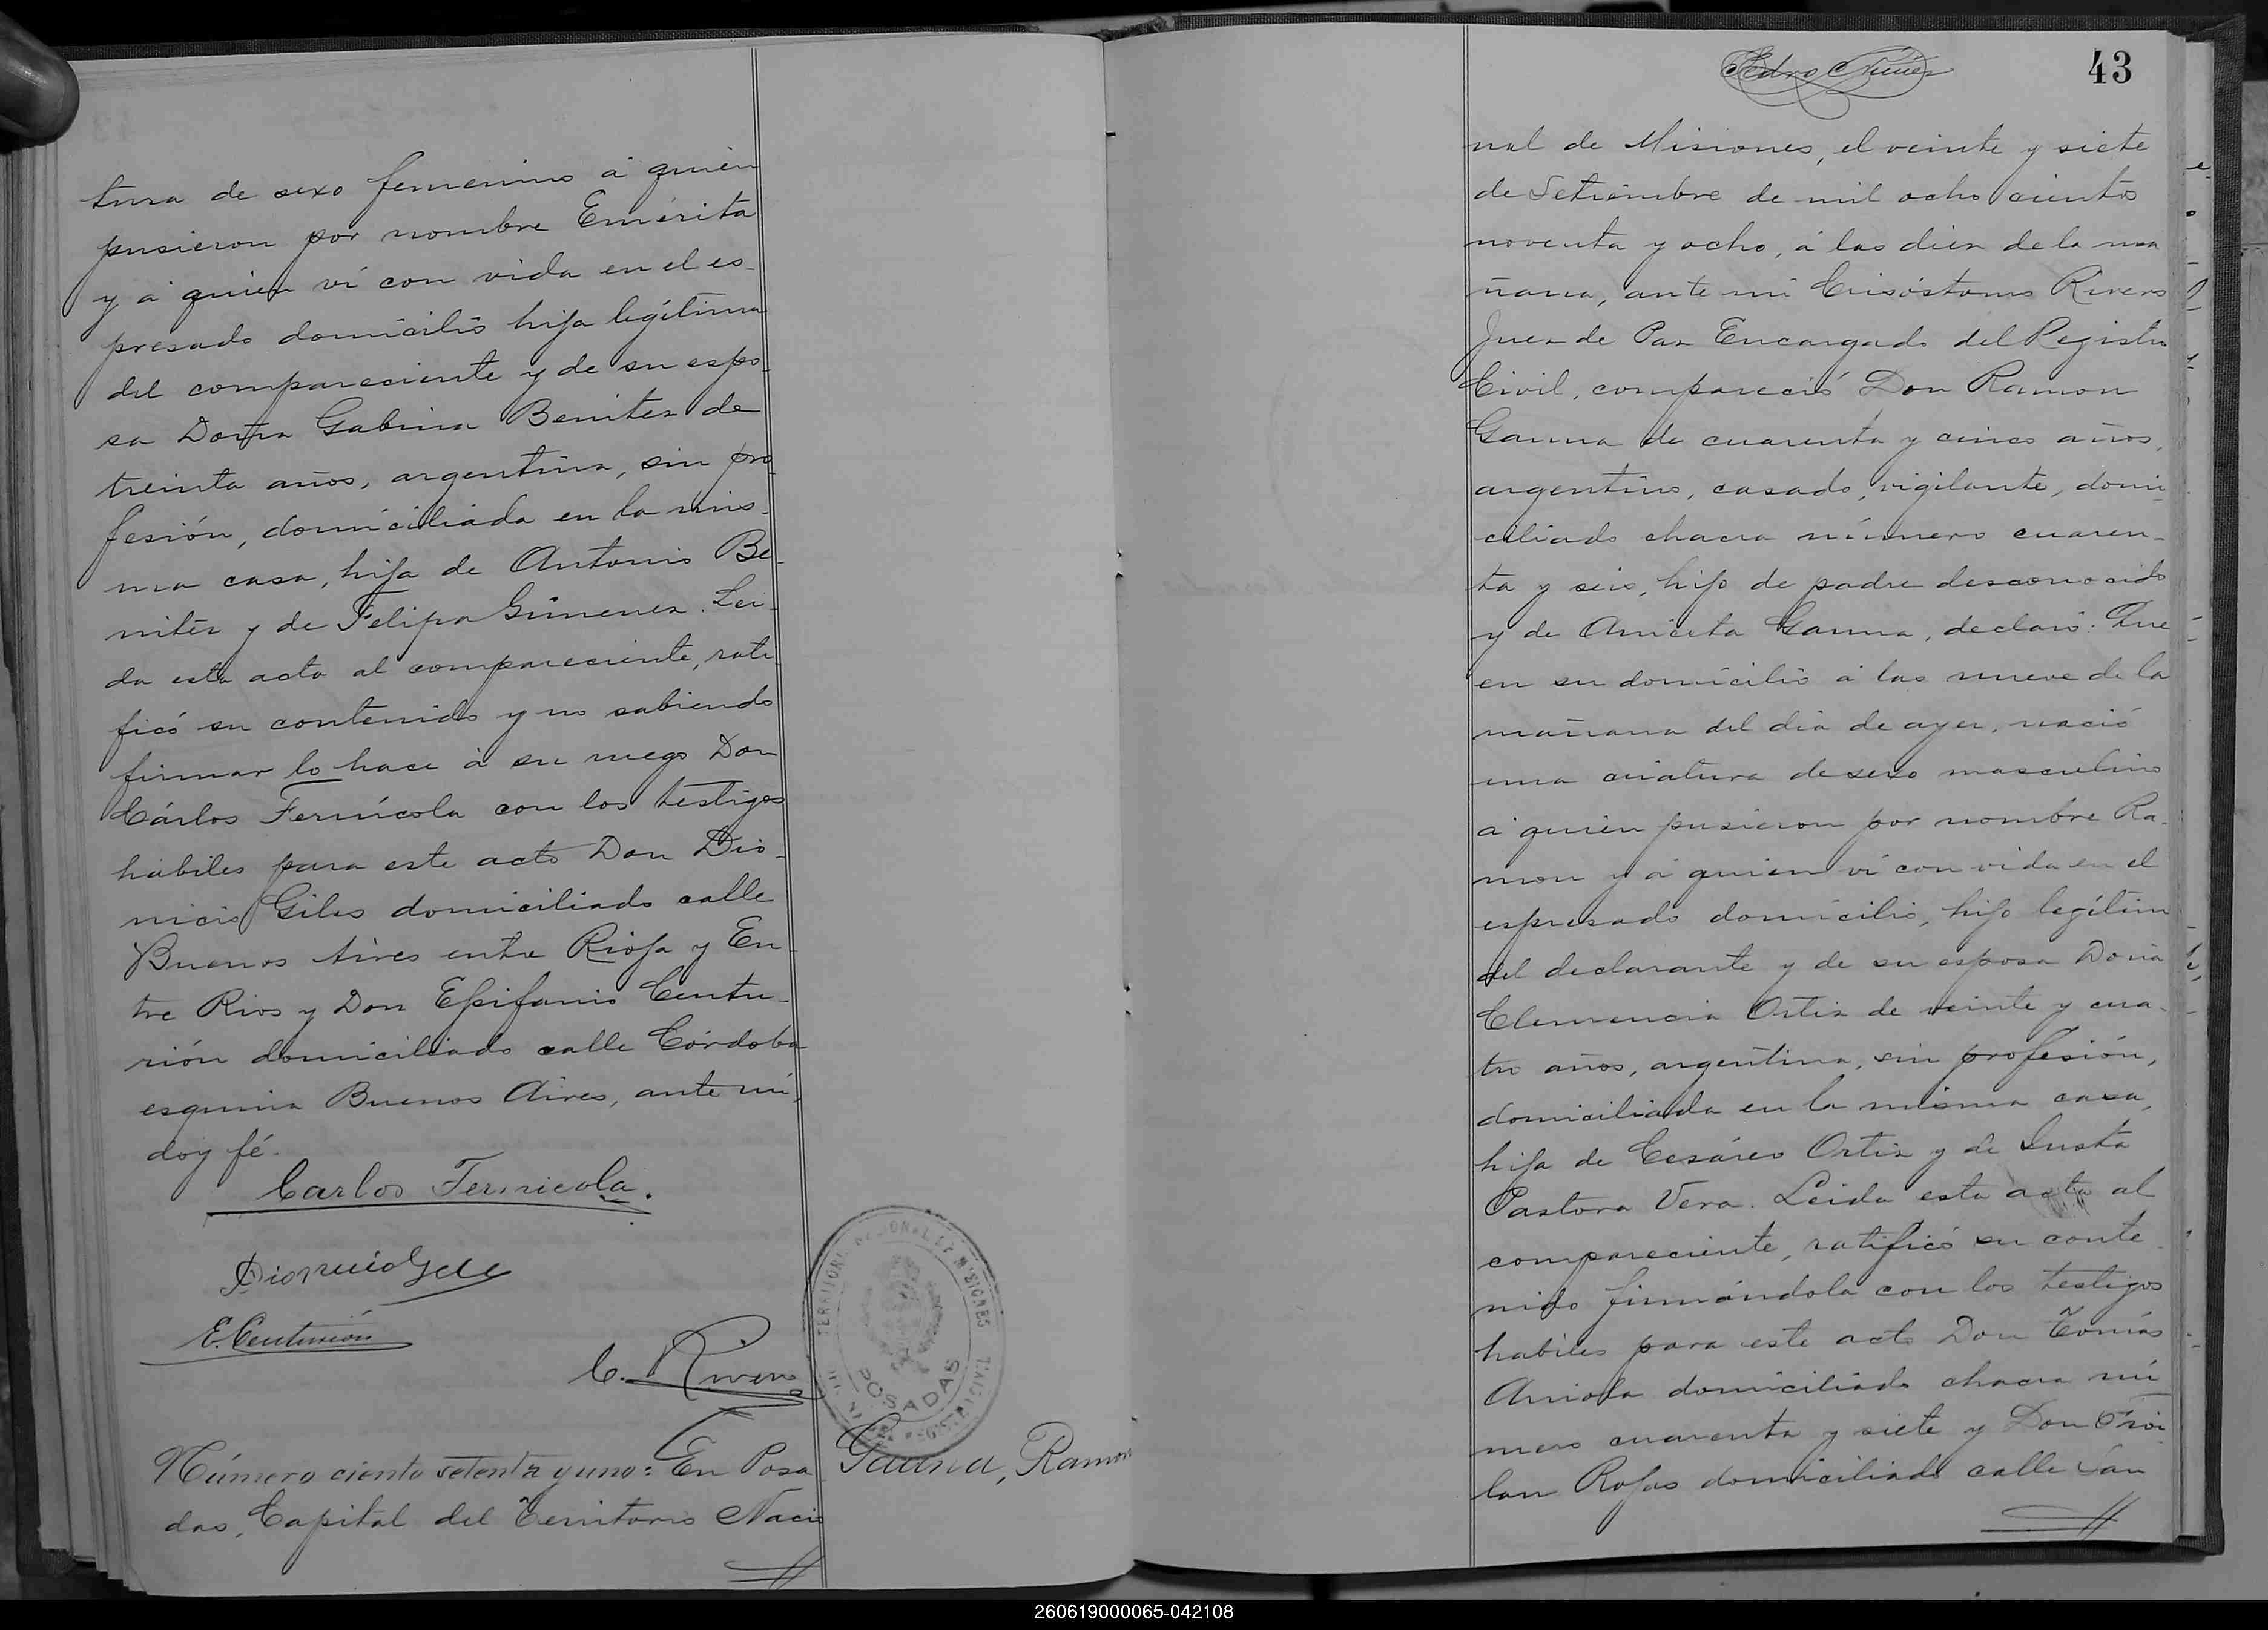 tura de sexo femenino á quién
pusieron por nombre Emérita
y á quien ví con vida en el es-
presado domicilio hija legítima
del compareciente y de su espo-
sa Doña Gabina Benitez de
treinta años, argentina, sin pro
fesión, domiciliada en la mis-
ma casa, hija de Antonio Be-
nitez y de Felipa Gimenez. Lei-
da esta acta al compareciente, rati
ficó su contenido y no sabiendo
firmar lo hace á su ruego Don
Cárlos Fernícola con los testigos
hábiles para este acto Don Dio-
nicio Giles domiciliado calle
Buenos Aires entre Rioja y En-
tre Rios y Don Epifanio Centu-
rión domiciliado calle Córdoba
esquina Buenos Aires, ante mí,
doy fé.
Carlos Fernicola.
Dionicio
E. Centurión
C. Rivero
TERRITORIO NACIONAL DE MISIONES
POSADAS
Número ciento setenta y uno: En Posa
das, Capital del Territorio Nacio
Gauna, Ramon
Pedro Nuñez
43
nal de Misiones, el veinte y siete
de Setiembre de mil ocho cientos
noventa y ocho, á las diez de la ma
ñana, ante mí Crisóstomo Rivero
Juez de Paz Encargado del Registro
Civil, compareció Don Ramon
Gauna de cuarenta y cinco años,
argentino, casado, vigilante, domi
ciliado chacra número cuaren-
ta y seis, hijo de padre desconocido
y de Aniceta Gauna, declaró: Que
en su domicilio á las nueve de la
mañana del dia de ayer, nació
una criatura de sexo masculino
á quien pusieron por nombre Ra-
mon y á quien ví con vida en el
espresado domicilio, hijo legítim
del declarante y de su esposa Doña
Clemencia Ortiz de veinte y cua-
tro años, argentina, sin profesión,
domiciliada en la misma casa,
hija de Cesáreo Ortiz y de Justa
Pastora Vera. Leida esta acta al
compareciente, ratificó su conte-
nido firmándola con los testigos
habiles para este acto Don Tomás
Arriola domiciliado chacra nú
mero cuarenta y siete y Don Froi
lan Rojas domiciliado calle San
260619000065-042108